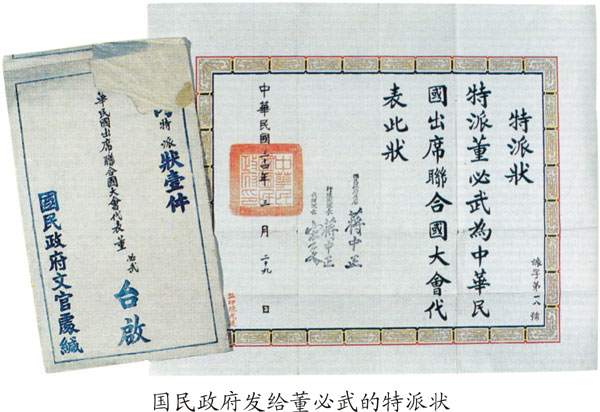 特派狀
特派董必武為中華民
國出席聯合國大會代
表此狀
蔣中正
蔣中正
中華民國三十四年三月二十九日
特派狀壹件
華民國出席聯合國大會代表董必武
台啟
國民政府文官處緘
国民政府发给董必武的特派状